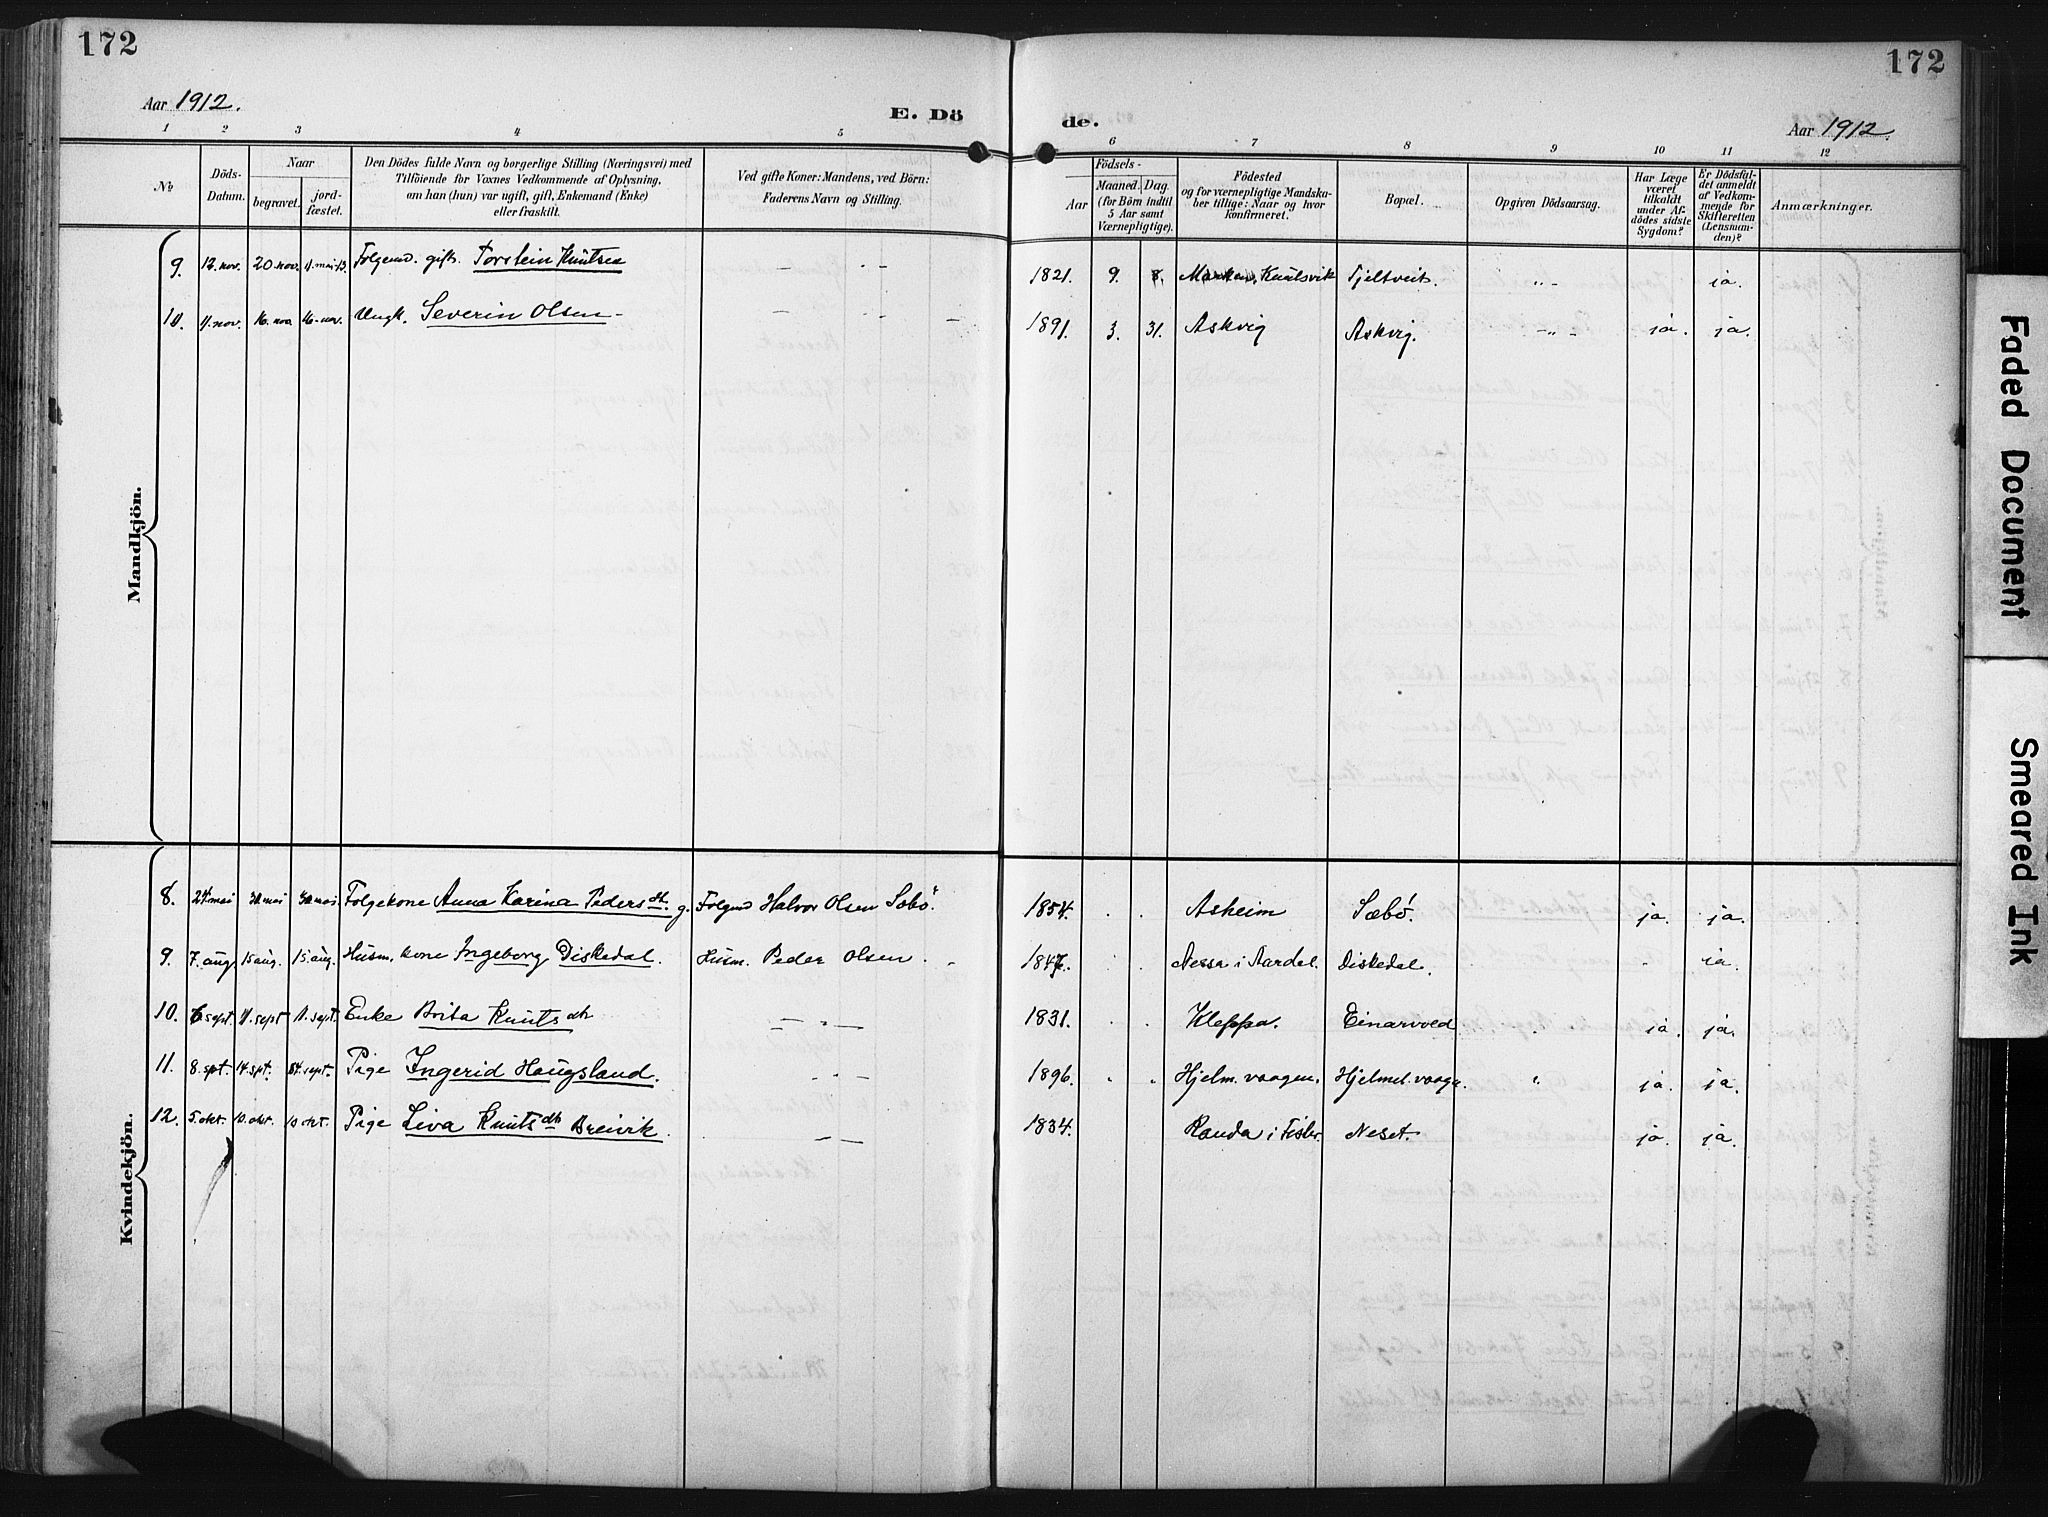 172
172
Aar 1912.
E. Dö
de.
Aar 1912.
1 2 3 4 5 6 7 8 9 10 11 12
№
Döds-Datum.
Naar
begravet.
jordfæstet.
Den Dödes fulde Navn og borgerlige Stilling (Næringsvei) med
Tilföiende for Voxnes Vedkommende af Oplysning,
om han (hun) var ugift, gift, Enkemand (Enke)
eller fraskilt.
Ved gifte Koner: Mandens, ved Börn:
Faderens Navn og Stilling.
Födsels-
Aar
Maaned. Dag.
(for Börn indtil
5 Aar samt
Værnepligtige).
Födested
og for værnepligtige Mandska-
ber tillige: Naar og hvor
konfirmeret.
Bopæl.
Opgiven Dödsaarsag.
Har Læge
været
tilkaldt
under Af-
dödes sidste
Sygdom?
Er Dödsfal-
det anmeldt
af Vedkom-
mende for
Skifteretten
(Lensman-
den)?
Anmærkninger.
Mandkjön.
9. 12. nov. 20. nov. 11. mai 13. Folgemd. gift. Torstein Knutsen – „ – 1821. 9. 8. Knutsvik Tjeltveit. „ – ja.
10. 11. nov. 16. nov. 16. nov. Ungk. Severin Olsen – – „ – – 1891. 3. 31. Askvig Askvig. – „ – ja. ja.
Kvindekjön.
8. 24. mai mai mai Folgekone Anna Karina Pedersdtr. g. Folgmd Halvor Olsen Sæbö. 1854. . . Asheim Sæbö. ja. ja.
9. 7. aug. 15 aug. 15. aug. Husm. kone Ingeborg Diskedal. Husm. Peder Olsen. 1847. . . Nessa i Aardal. Diskedal. ja.
10. 6 sept. 11. sept 11. sept. Enke Brita Knutsdtr – „ – 1831. . . Kleppa. Einarvold ja. ja.
11. 8. spt. 14. spt. 14. sept. Pige Ingerid Haugsland. „ – 1896. „ „ Hjelm. vaagen. Hjelmel. vaagn. „ ja. ja.
12. 5. okt. 10. okt. 10 okt. Pige Liva Knutsdtr Breivik. „ – 1834. Randa i Fister. Neset. ja. ja.
Faded Document
Smeared Ink